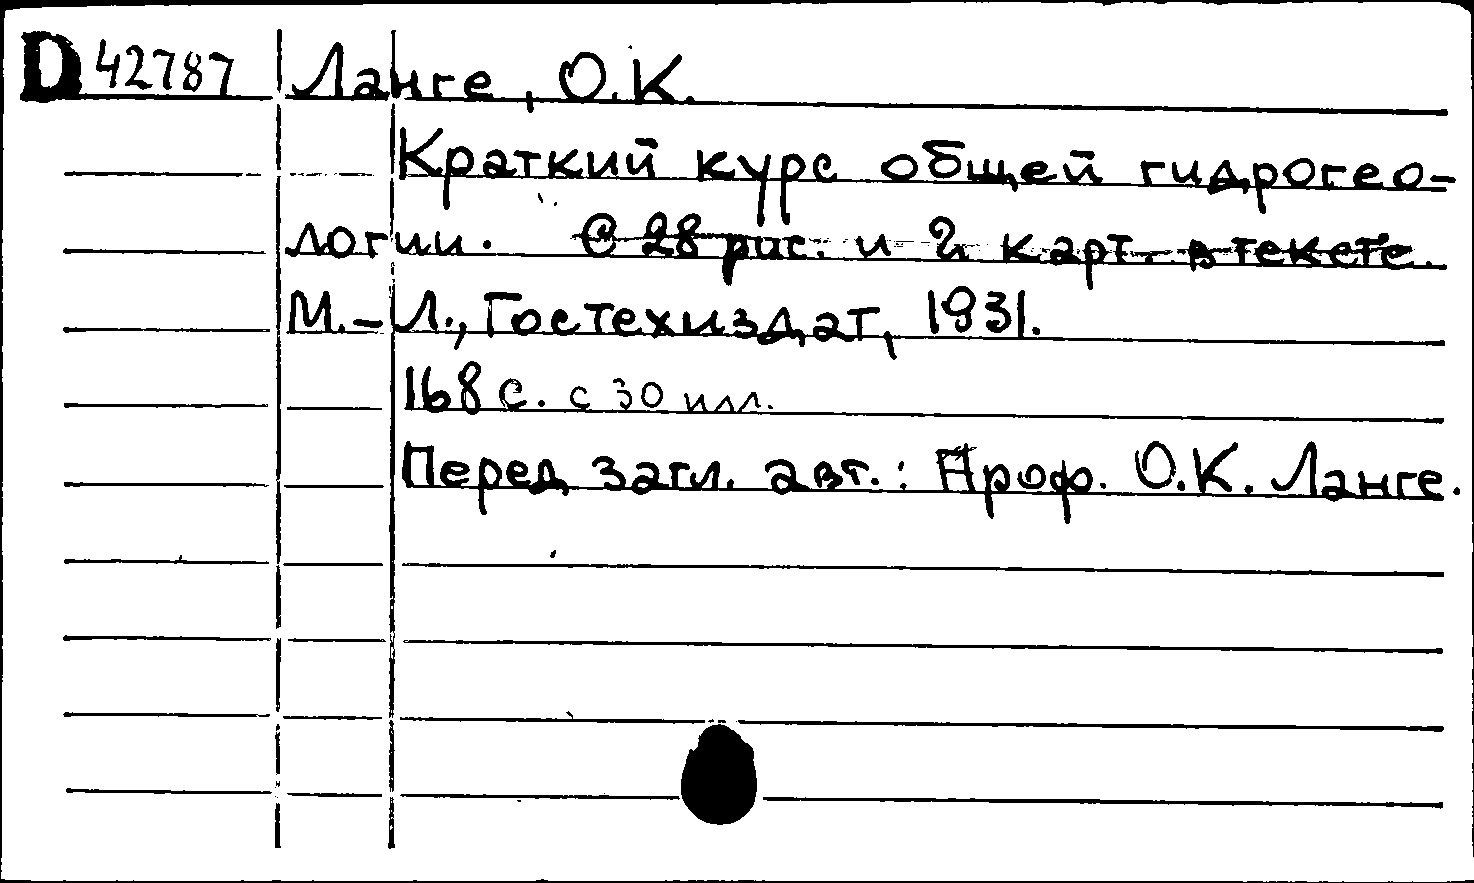 D 42787 Ланге, О.К.
Краткий курс общей гидрогео-
логии. С 28 рис. и 2 карт. в тексте.
М.-Л., Гостехиздат, 1931.
168 с. с 30 илл.
Перед загл. авт.: Проф. О.К. Ланге.